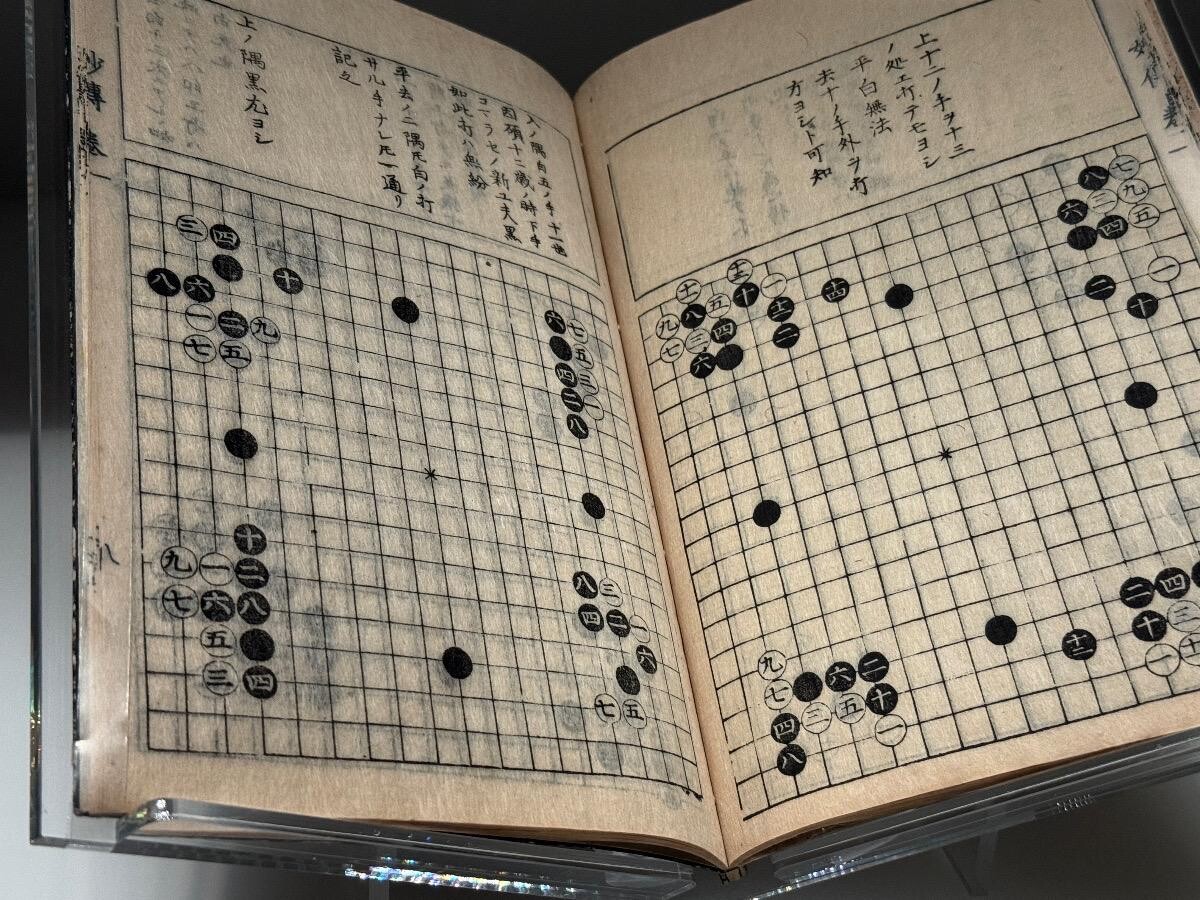 上十二ノ手ヲ十三
ノ処エ打テモヨシ
平白無法
去十ノ手外ヲ打
方ヨシト可知
八七
六三九
四五
一
二十
十三
十一五十一
九八十二十四
七三四二
六
二四
十三
十二一
九六二
七三五十
四一
八
入ノ隅白五ノ手十一世
因碩十二歳ノ時下手
コマラセノ新工夫黒
如此打ハ無紛
平去ノ二隅𪜈白ノ打
サル手ナレ𪜈一通リ
記之
上ノ隅黒尤ヨシ
六七
五
四三
二一
八
三四
八六十
一二九
七五
八三
四二一
六
七五
十
九一二
七六八
五
三四
妙傳 巻一
八